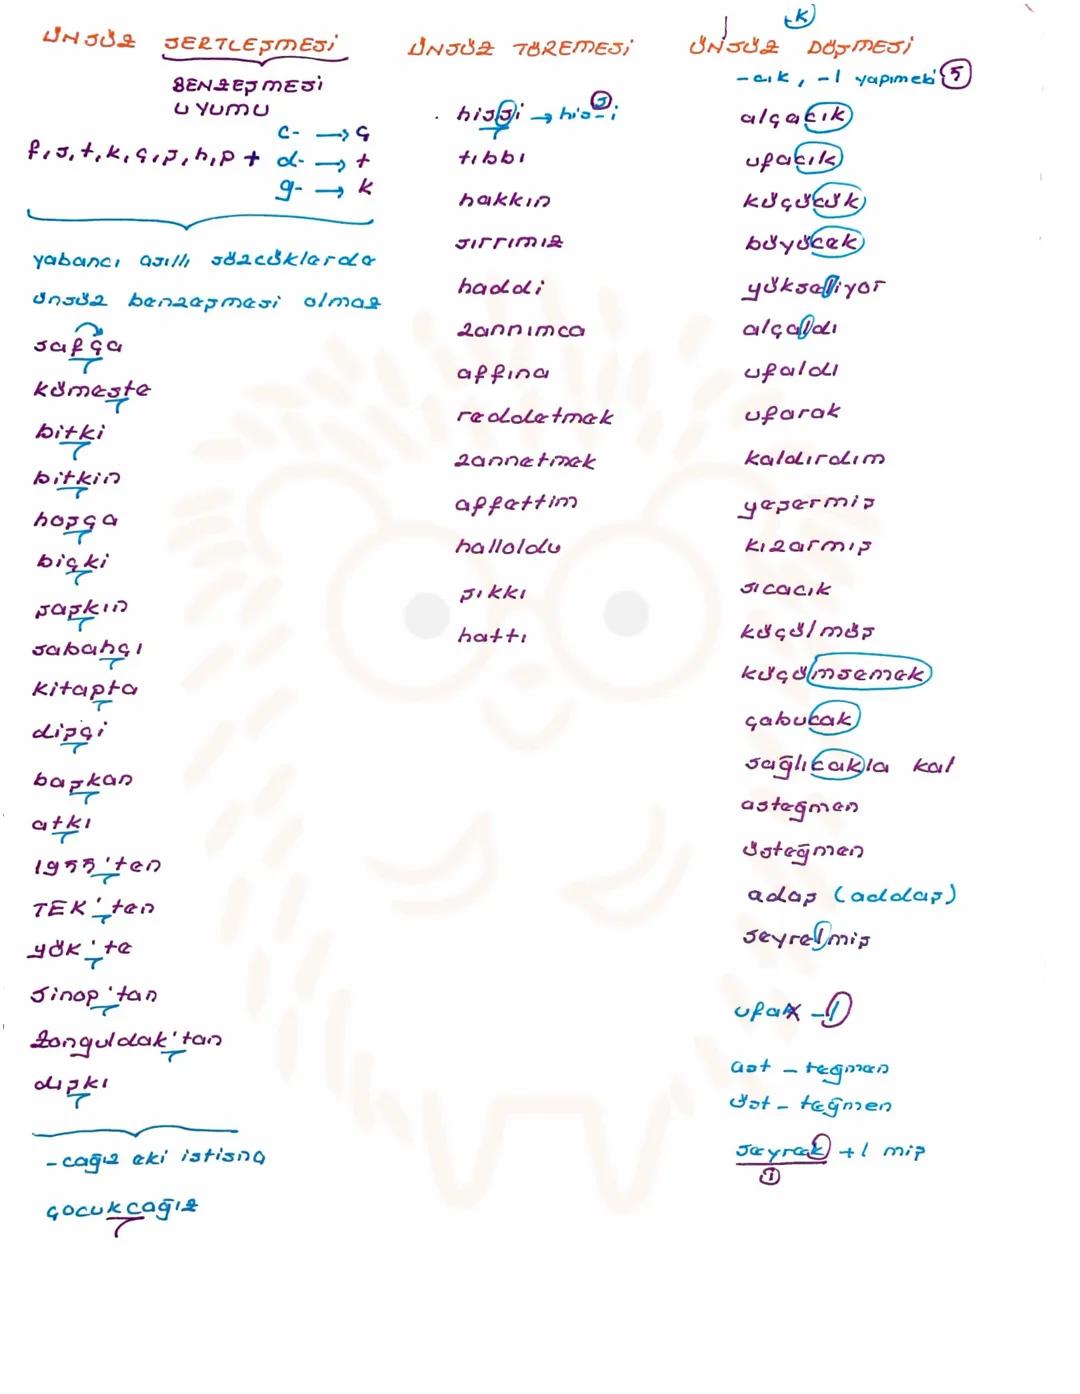 ÜNSÜZ SERTLEŞMESİ
BENZEŞMESİ
UYUMU
f, s, t, k, ç, ş, h, p + c- → ç
d- → t
g- → k
yabancı asıllı sözcüklerde
ünsüz benzeşmesi olmaz
safça
kümeste
bitki
bitkin
hoşça
biçki
şaşkın
sabahçı
kitapta
dişçi
başkan
atkı
1955'ten
TEK'ten
YÖK'te
Sinop'tan
Zonguldak'tan
dışkı
-cağız eki istisna
çocukcağız
ÜNSÜZ TÜREMESİ
hissi → his-i
tıbbı
hakkın
sırrımız
haddi
zannımca
affına
reddetmek
zannetmek
affettim
halloldu
şıkkı
hattı
k
ÜNSÜZ DÜŞMESİ
-cık, -l yapım eki 5
alçacık
ufacık
küçücük
büyücek
yükseliyor
alçaldı
ufaldı
ufarak
kaldırdım
yeşermiş
kızarmış
sıcacık
küçülmüş
küçümsemek
çabucak
sağlıcakla kal
asteğmen
üsteğmen
adaş (addaş)
seyrelmiş
ufak -l
ast - teğmen
üst - teğmen
seyrek + l miş
i